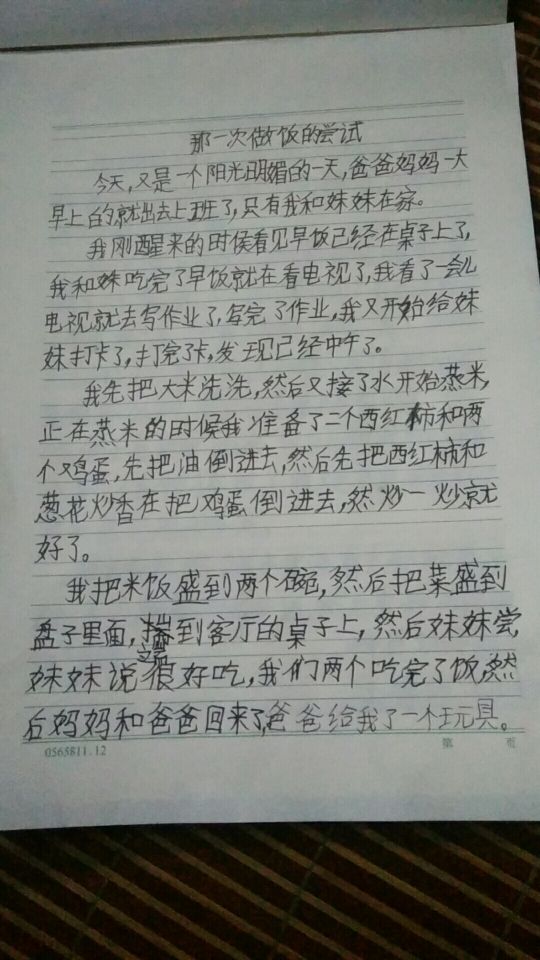 那一次做饭的尝试
今天,又是一个阳光明媚的一天,爸爸妈妈一大
早上的就出去上班了,只有我和妹妹在家。
我刚醒来的时侯看见早饭已经在桌子上了,
我和妹吃完了早饭就在看电视了,我看了一会儿
电视就去写作业了,写完了作业,我又开始给妹
妹打卡了,打完了卡,发现已经中午了。
我先把大米洗洗,然后又接了水开始蒸米,
正在蒸米的时候我准备了二个西红柿和两
个鸡蛋,先把油倒进去,然后先把西红柿和
葱花炒香在把鸡蛋倒进去,然炒一炒就
好了。
我把米饭盛到两个碗,然后把菜盛到
盘子里面,端到客厅的桌子上,然后妹妹尝,
妹妹说很好吃,我们两个吃完了饭,然
后妈妈和爸爸回来了,爸爸给我了一个玩具。
0565811.12 第 页